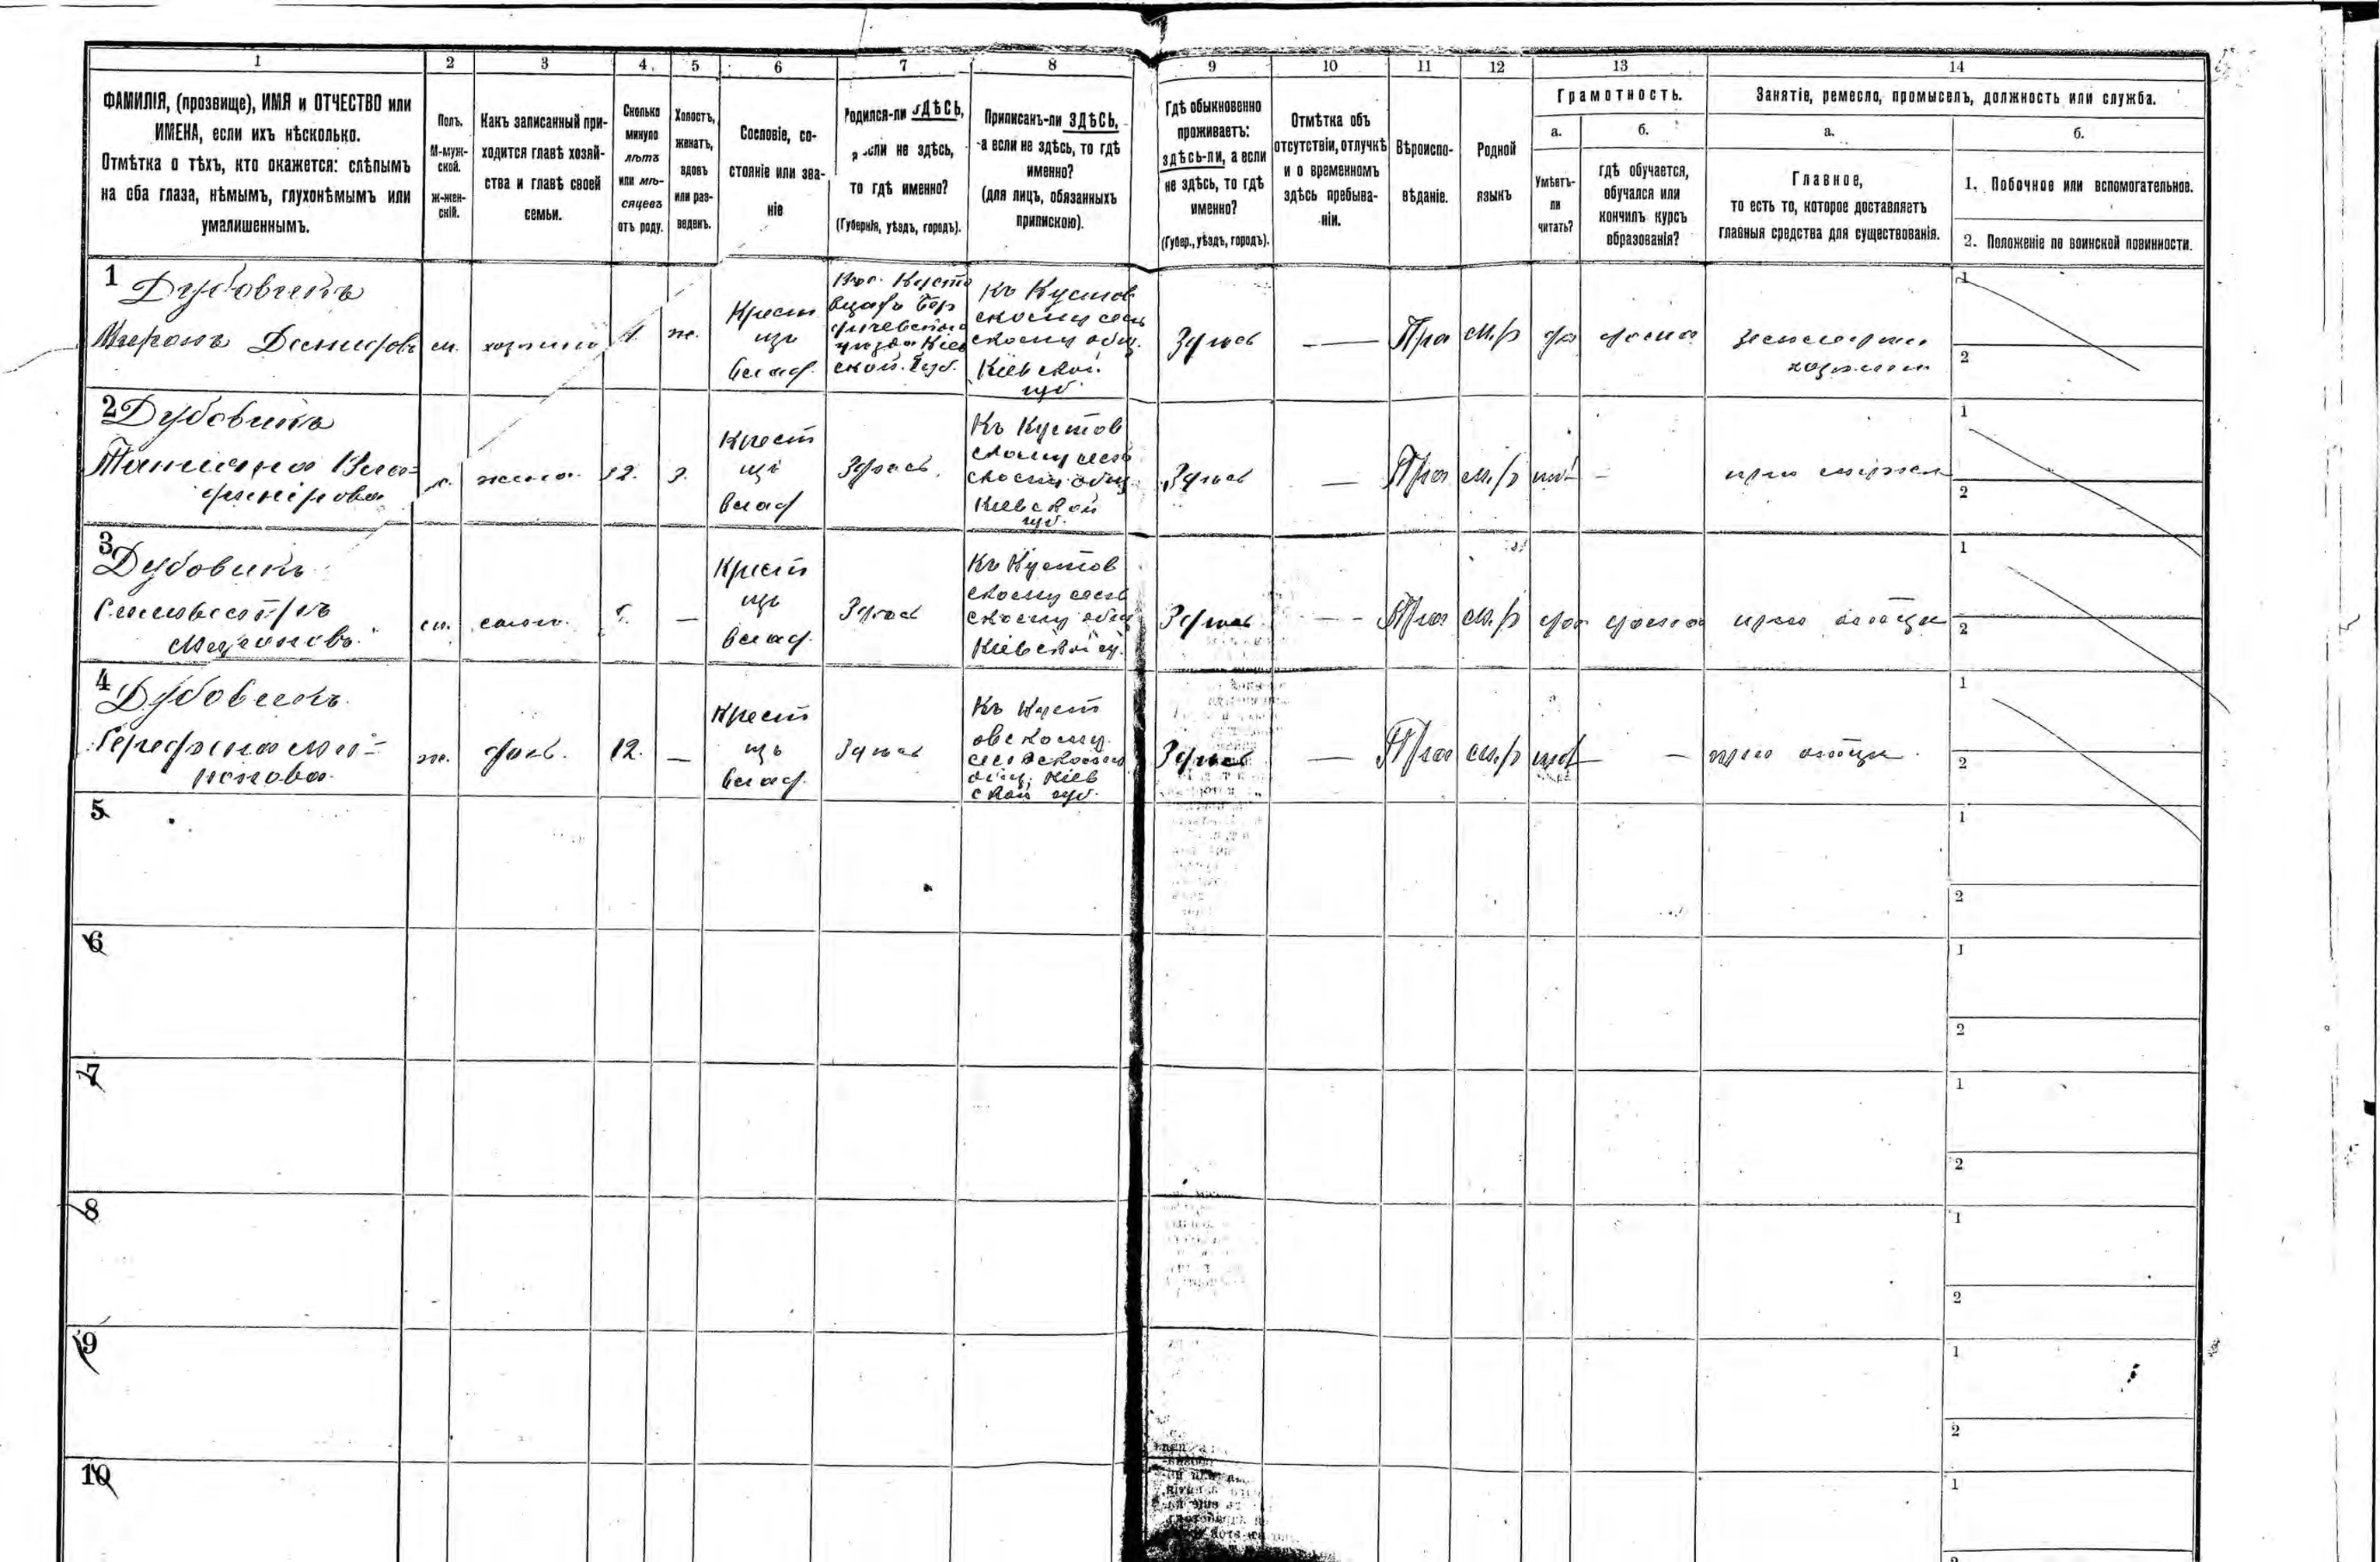 1 2 3 4 5 6 7 8 9 10 11 12 13 14
ФАМИЛІЯ, (прозвище), ИМЯ и ОТЧЕСТВО или
ИМЕНА, если ихъ нѣсколько.
Отмѣтка о тѣхъ, кто окажется: слѣпымъ
на оба глаза, нѣмымъ, глухонѣмымъ или
умалишеннымъ.
Полъ.
М-муж-
ской.
ж-жен-
скій.
Какъ записанный при-
ходится главѣ хозяй-
ства и главѣ своей
семьи.
Сколько
минуло
лѣтъ
или мѣ-
сяцевъ
отъ роду.
Холостъ,
женатъ,
вдовъ
или раз-
веденъ.
Сословіе, со-
стояніе или зва-
ніе
Родился-ли ЗДѢСЬ,
если не здѣсь,
то гдѣ именно?
(Губернія, уѣздъ, городъ).
Приписанъ-ли ЗДѢСЬ,
а если не здѣсь, то гдѣ
именно?
(для лицъ, обязанныхъ
припискою).
Гдѣ обыкновенно
проживаетъ:
здѣсь-ли, а если
не здѣсь, то гдѣ
именно?
(Губер., уѣздъ, городъ).
Отмѣтка объ
отсутствіи, отлучкѣ
и о временномъ
здѣсь пребыва-
ніи.
Вѣроиспо-
вѣданіе.
Родной
языкъ
Грамотность.
а.
Умѣетъ-
ли
читать?
б.
гдѣ обучается,
обучался или
кончилъ курсъ
образованія?
Занятіе, ремесло, промыселъ, должность или служба.
а.
Главное,
то есть то, которое доставляетъ
главныя средства для существованія.
б.
1. Побочное или вспомогательное.
2. Положеніе по воинской повинности.
1 Дубовикъ
Миронъ
м.
ж.
Крест
цъ
влад.
уѣзда Кіев
ской. Губ.
Къ Кустов
скому сель
скому общ.
Кіевской
губ.
Здѣсь
Пра
м.р
да
дома
1
2
2 Дубовикъ
жена.
Крест
цъ
влад
Здѣсь.
Къ Кустов
скому сель
скому общ.
Кіевской
губ.
Здѣсь
Пра
м.р
при мужѣ
1
2
3 Дубовикъ
Сильвестръ
Мироновъ
м.
сынъ.
Крест
цъ
влад.
Здѣсь
Къ Кустов
скому сель
скому общ
Кіевской г.
Здѣсь
Пра
м.р
да
дома
при отцѣ
1
2
4 Дубовикъ
ж.
дочь.
12.
Крест
цъ
влад.
Здѣсь
Къ Куст
овскому
сельскому
общ. Кіев
ской губ.
Здѣсь
Пра
м.р
при отцѣ
1
2
5
1
2
6
1
2
7
1
2
8
1
2
9
1
2
10
1
2